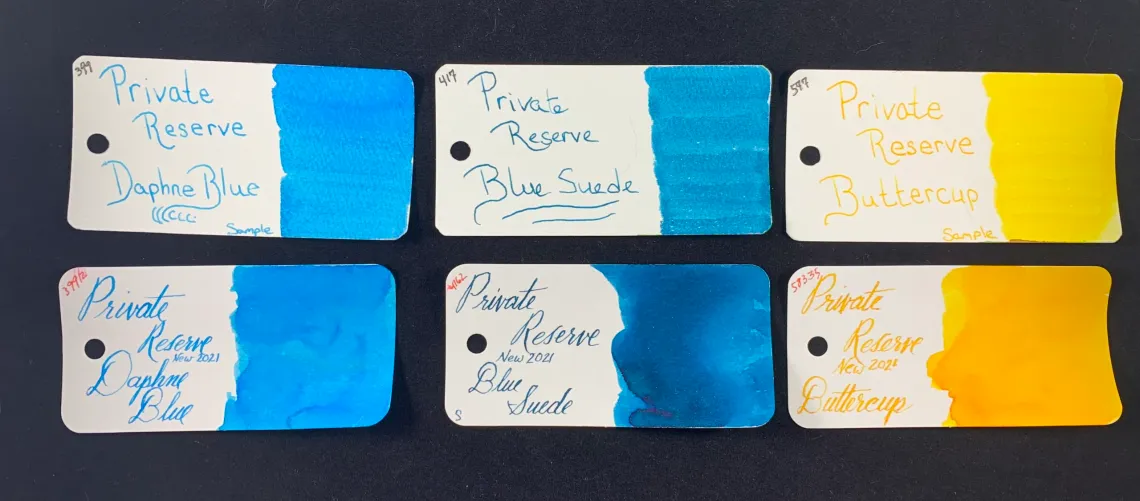 399
Private
Reserve
Daphne Blue
Sample
417
Private
Reserve
Blue Suede
577
Private
Reserve
Buttercup
Sample
399/2
Private
Reserve
New 2021
Daphne
Blue
Private
Reserve
New 2021
Blue
Suede
S
Private
Reserve
New 2021
Buttercup